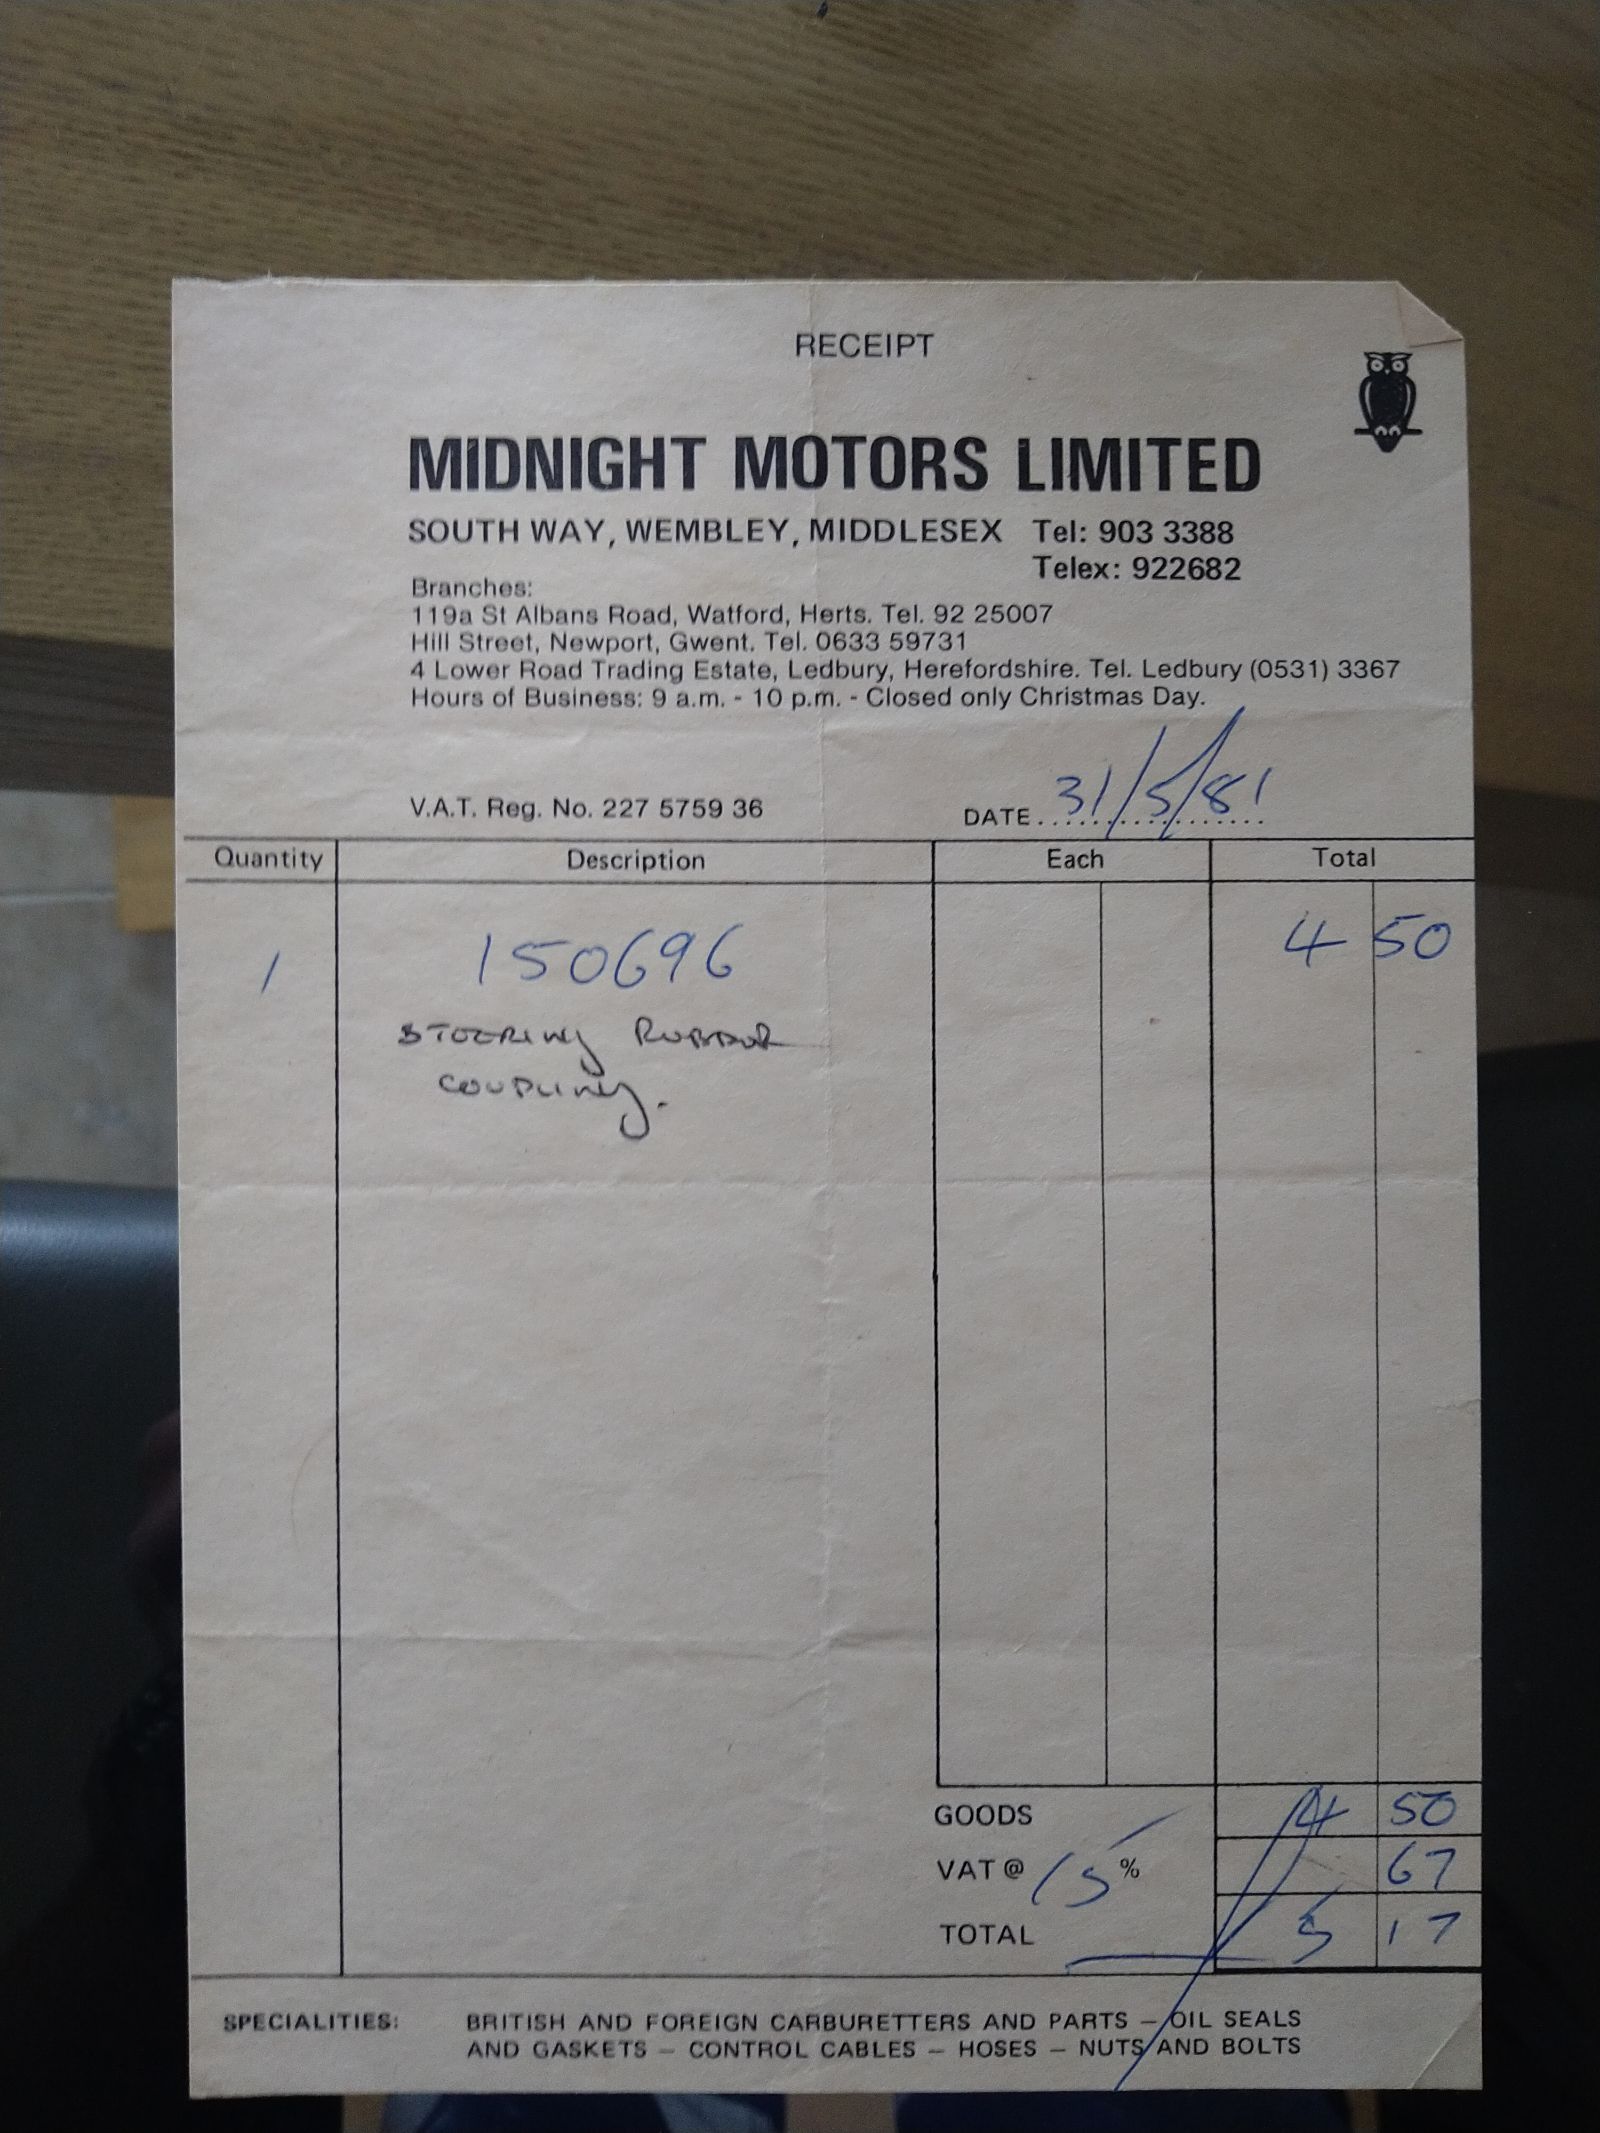 RECEIPT
MIDNIGHT MOTORS LIMITED
SOUTH WAY, WEMBLEY, MIDDLESEX Tel: 903 3388
Telex: 922682
Branches:
119a St Albans Road, Watford, Herts. Tel. 92 25007
Hill Street, Newport, Gwent. Tel. 0633 59731
4 Lower Road Trading Estate, Ledbury, Herefordshire. Tel. Ledbury (0531) 3367
Hours of Business: 9 a.m. - 10 p.m. - Closed only Christmas Day.
V.A.T. Reg. No. 227 5759 36 DATE 31/5/81
Quantity Description Each Total
1 150696 4 50
STEERING RUBBER
COUPLING.
GOODS 4 50
VAT @ 15 % 67
TOTAL 5 17
SPECIALITIES: BRITISH AND FOREIGN CARBURETTERS AND PARTS – OIL SEALS
AND GASKETS – CONTROL CABLES – HOSES – NUTS AND BOLTS